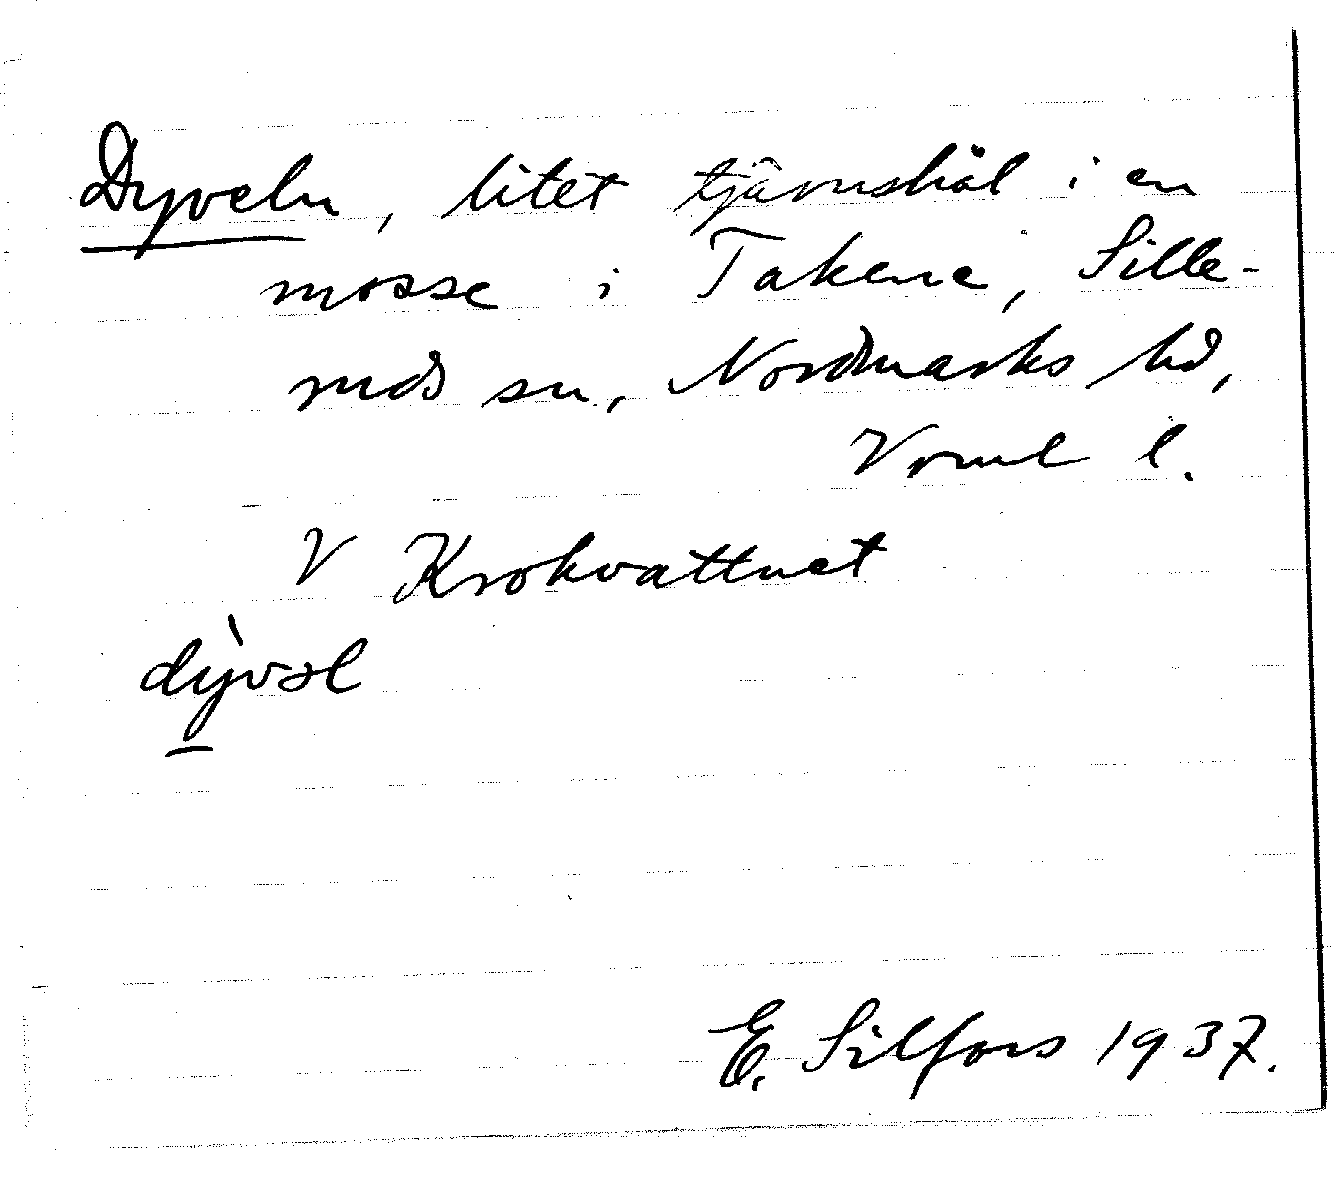 Dyveln, litet tjärnshål i en
mosse i Takene, Sille-
ruds sn, Nordmarks hd,
Vrml l.
V Krokvattnet
dỳvəl
E. Silfors 1937.